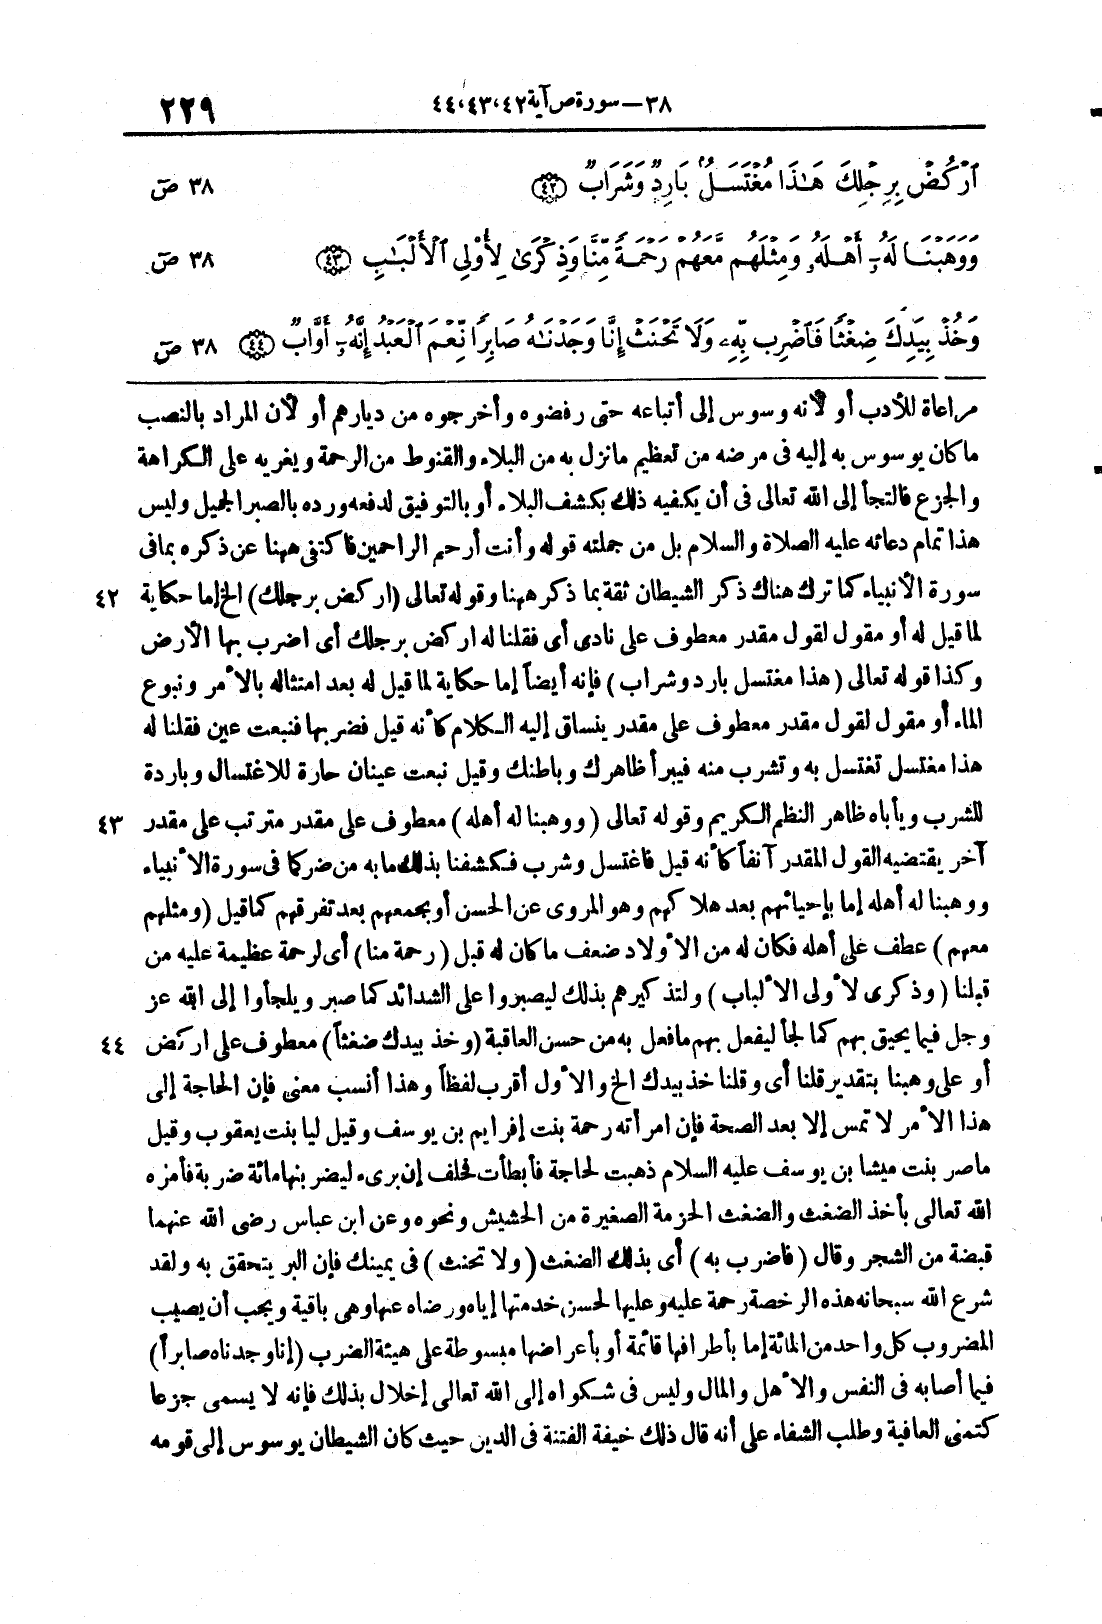 ٢٢٩ ٣٨ — سورة ص آية ٤٢، ٤٣، ٤٤
ٱرْكُضْ بِرِجْلِكَ هَٰذَا مُغْتَسَلٌۢ بَارِدٌ وَشَرَابٌ ﴿٤٢﴾ ٣٨ صٓ
وَوَهَبْنَا لَهُۥٓ أَهْلَهُۥ وَمِثْلَهُم مَّعَهُمْ رَحْمَةً مِّنَّا وَذِكْرَىٰ لِأُوْلِى ٱلْأَلْبَٰبِ ﴿٤٣﴾ ٣٨ صٓ
وَخُذْ بِيَدِكَ ضِغْثًا فَٱضْرِب بِّهِۦ وَلَا تَحْنَثْ إِنَّا وَجَدْنَٰهُ صَابِرًا نِّعْمَ ٱلْعَبْدُ إِنَّهُۥٓ أَوَّابٌ ﴿٤٤﴾ ٣٨ صٓ
مراعاة للأدب أو لأنه وسوس إلى أتباعه حتى رفضوه وأخرجوه من ديارهم أو لأن المراد بالنصب
ما كان يوسوس به إليه فى مرضه من تعظيم ما نزل به من البلاء والقنوط من الرحمة ويغريه على الكراهة
والجزع فالتجأ إلى الله تعالى فى أن يكفيه ذلك بكشف البلاء أو بالتوفيق لدفعه ورده بالصبر الجميل وليس
هذا تمام دعائه عليه الصلاة والسلام بل من جملته قوله وأنت أرحم الراحمين فاكتفى ههنا عن ذكره بما فى
سورة الأنبياء كما ترك هناك ذكر الشيطان ثقة بما ذكر ههنا وقوله تعالى (اركض برجلك) الخ إما حكاية ٤٢
لما قيل له أو مقول لقول مقدر معطوف على نادى أى فقلنا له اركض برجلك أى اضرب بها الأرض
وكذا قوله تعالى (هذا مغتسل بارد وشراب) فإنه أيضاً إما حكاية لما قيل له بعد امتثاله بالأمر ونبوع
الماء أو مقول لقول مقدر معطوف على مقدر ينساق إليه الكلام كأنه قيل فضربها فنبعت عين فقلنا له
هذا مغتسل تغتسل به وتشرب منه فيبرأ ظاهرك وباطنك وقيل نبعت عينان حارة للاغتسال وباردة
للشرب ويأباه ظاهر النظم الكريم وقوله تعالى (ووهبنا له أهله) معطوف على مقدر مترتب على مقدر ٤٣
آخر يقتضيه القول المقدر آنفاً كأنه قيل فاغتسل وشرب فكشفنا بذلك ما به من ضر كما فى سورة الأنبياء
ووهبنا له أهله إما بإحيائهم بعد هلاكهم وهو المروى عن الحسن أو بجمعهم بعد تفرقهم كما قيل (ومثلهم
معهم) عطف على أهله فكان له من الأولاد ضعف ما كان له قبل (رحمة منا) أى لرحمة عظيمة عليه من
قبلنا (وذكرى لأولى الألباب) ولتذكيرهم بذلك ليصبروا على الشدائد كما صبر ويلجأوا إلى الله عز
وجل فيما يحيق بهم كما لجأ ليفعل بهم ما فعل به من حسن العاقبة (وخذ بيدك ضغثاً) معطوف على اركض ٤٤
أو على وهبنا بتقدير قلنا أى وقلنا خذ بيدك الخ والأول أقرب لفظاً وهذا أنسب معنى فإن الحاجة إلى
هذا الأمر لا تمس إلا بعد الصحة فإن امرأته رحمة بنت إفرايم بن يوسف وقيل ليا بنت يعقوب وقيل
ماصر بنت ميشا بن يوسف عليه السلام ذهبت لحاجة فأبطأت فحلف إن برىء ليضربنها مائة ضربة فأمره
الله تعالى بأخذ الضغث والضغث الحزمة الصغيرة من الحشيش ونحوه وعن ابن عباس رضى الله عنهما
قبضة من الشجر وقال (فاضرب به) أى بذلك الضغث (ولا تحنث) فى يمينك فإن البر يتحقق به ولقد
شرع الله سبحانه هذه الرخصة رحمة عليه وعليها لحسن خدمتها إياه ورضاه عنها وهى باقية ويجب أن يصيب
المضروب كل واحد من المائة إما بأطرافها قائمة أو بأعراضها مبسوطة على هيئة الضرب (إنا وجدناه صابراً)
فيما أصابه فى النفس والأهل والمال وليس فى شكواه إلى الله تعالى إخلال بذلك فإنه لا يسمى جزعا
كتمنى العافية وطلب الشفاء على أنه قال ذلك خيفة الفتنة فى الدين حيث كان الشيطان يوسوس إلى قومه